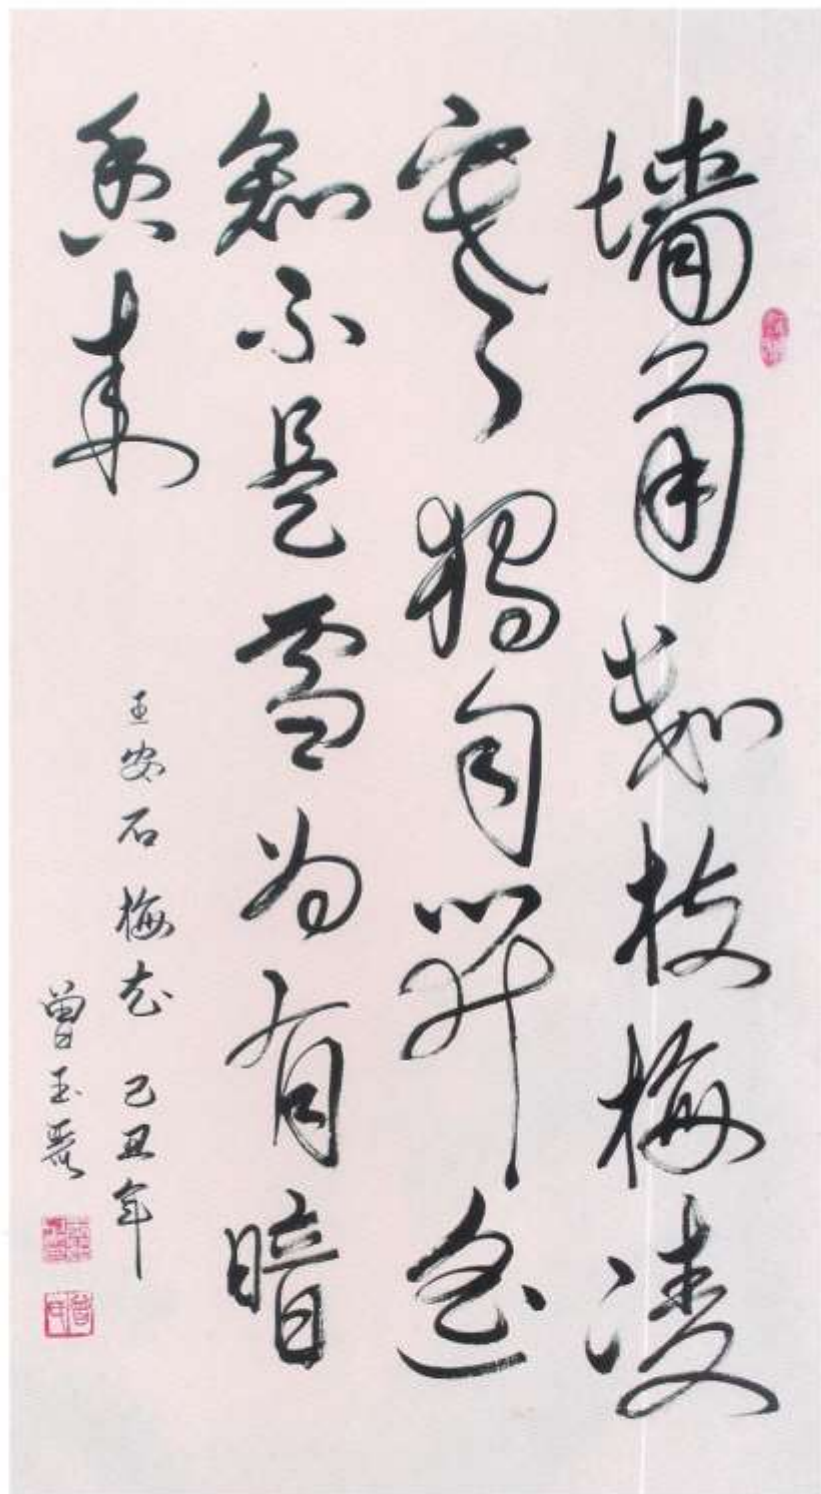 墙角数枝梅凌
寒独自開遥
知不是雪为有暗
香来
王安石梅花 己丑年
曾玉